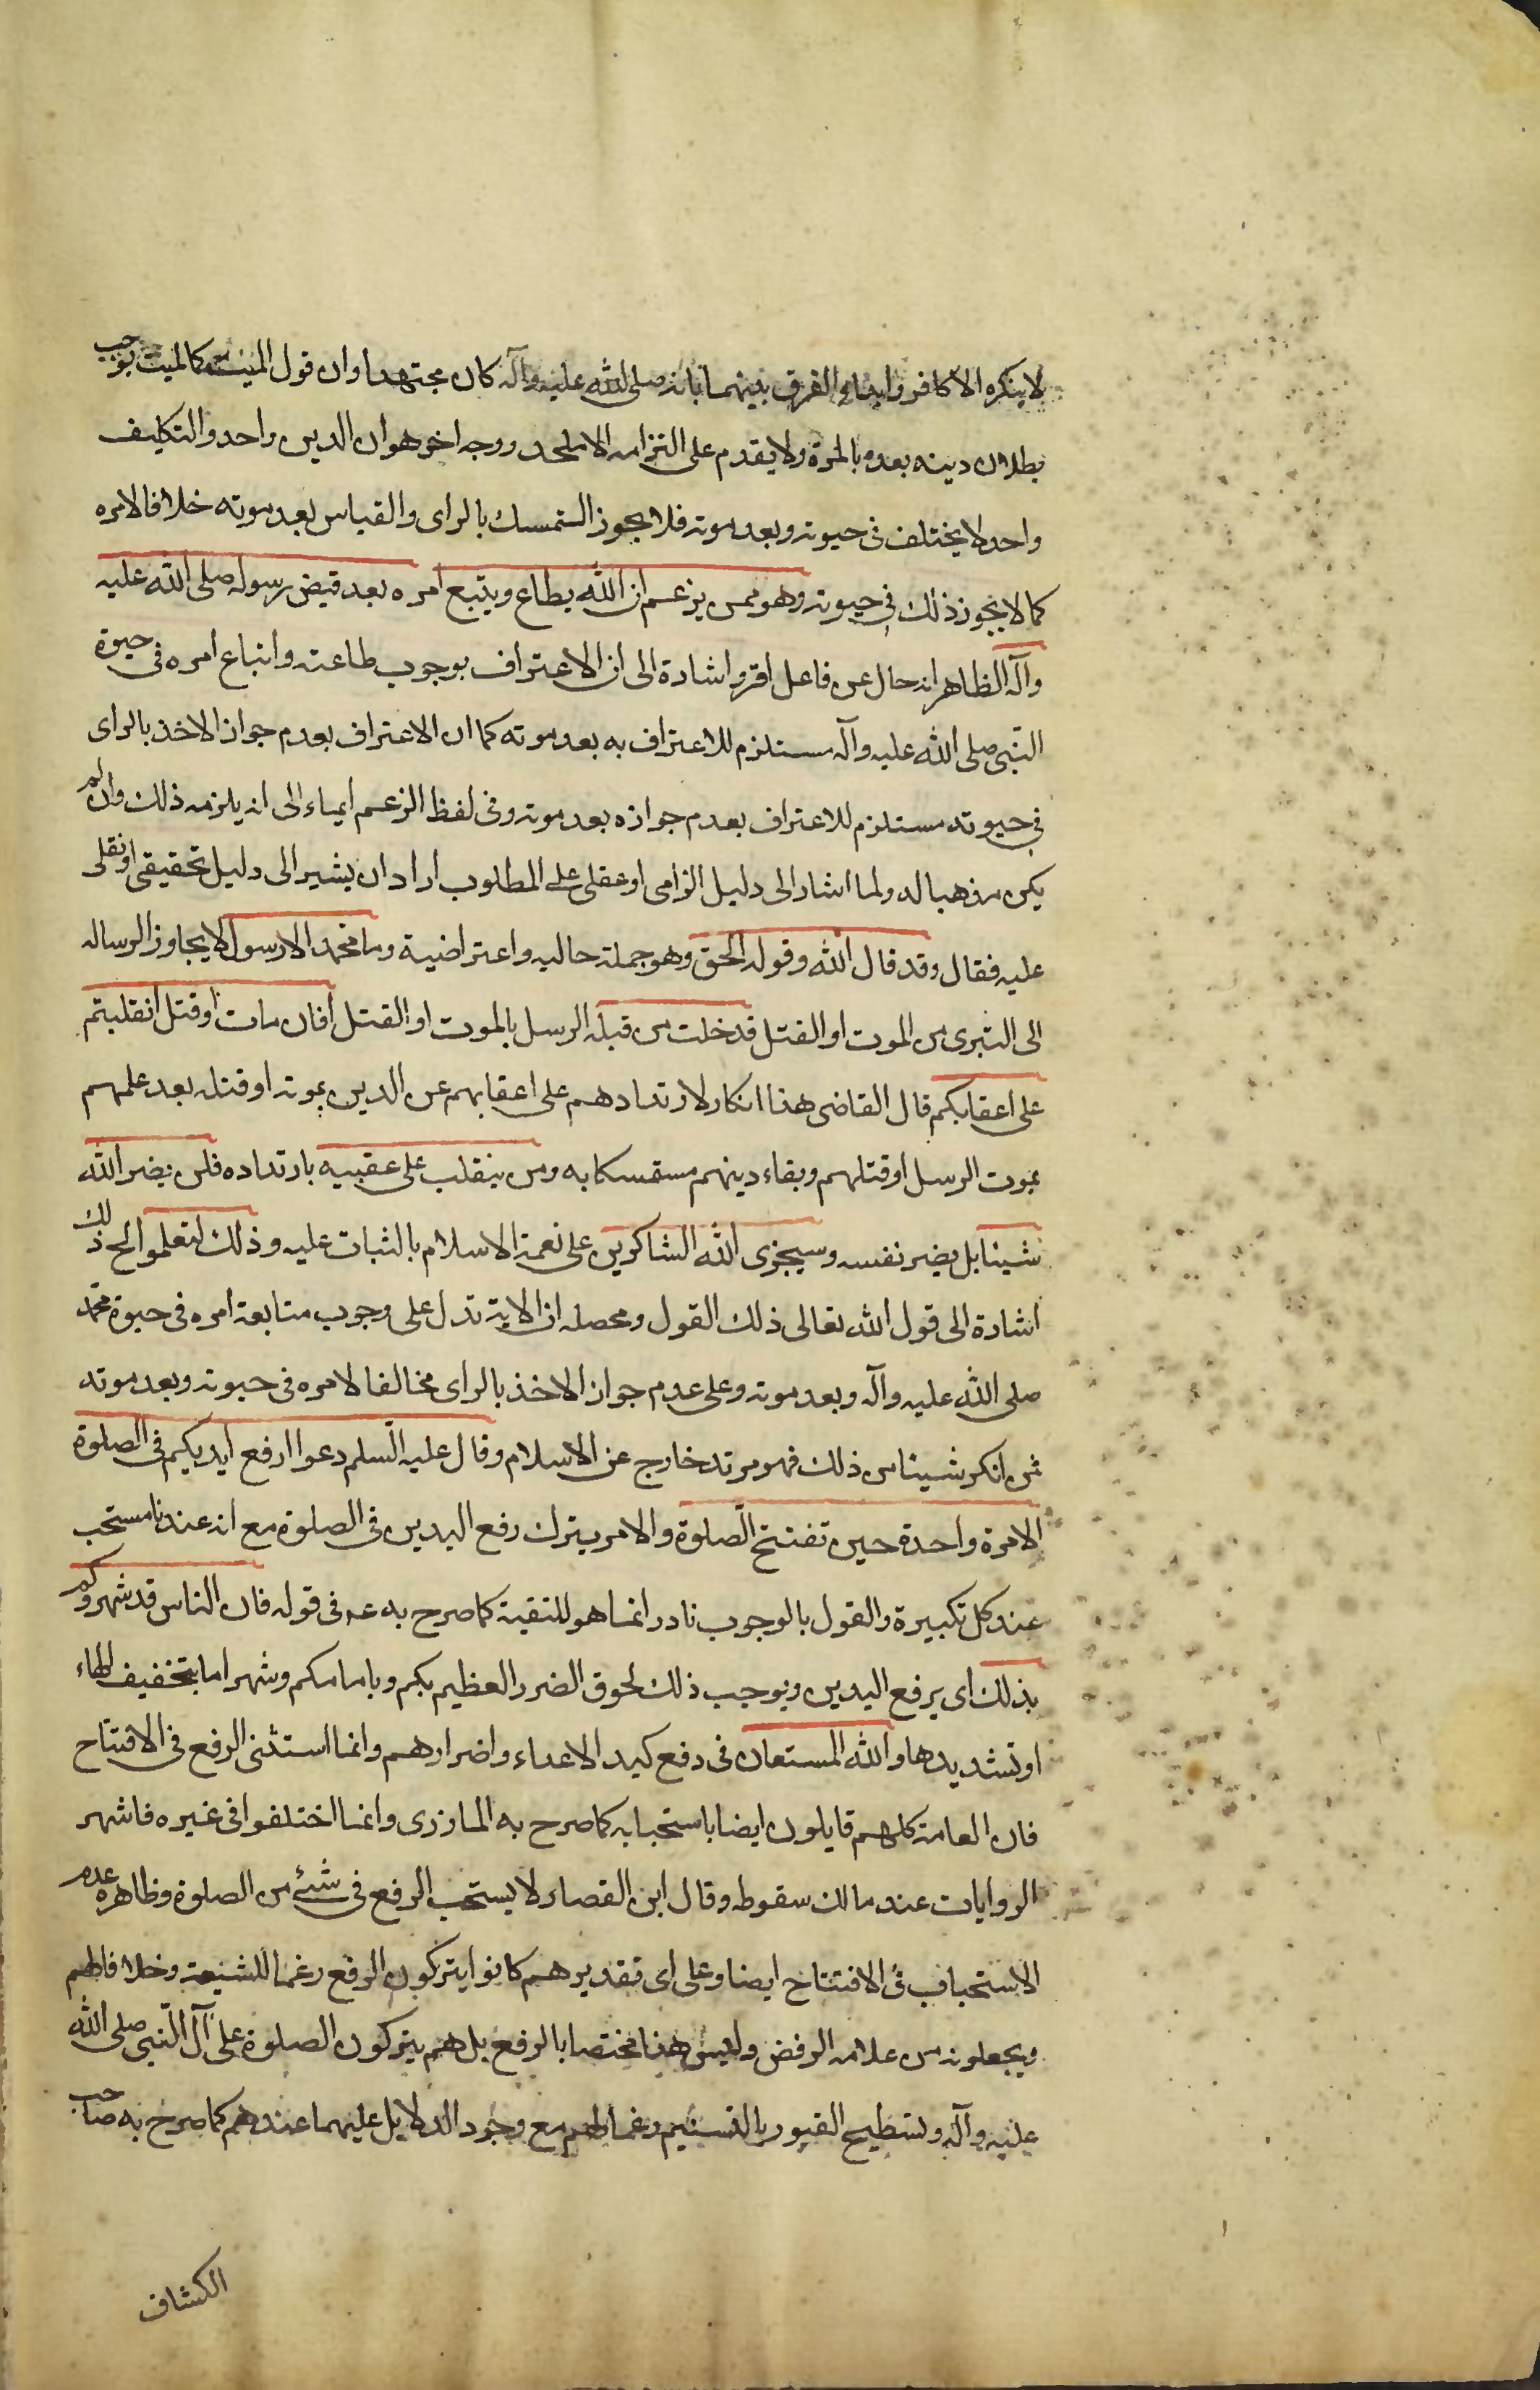 لا ينكره الا كافر وابداء الفرق بينهما بانه صلى الله عليه وآله كان مجتهدا وان قول الميت كالميت يوجب
بطلان دينه بعده بالمرة ولا يقدم على التزامه الا ملحد ووجه اخر هو ان الدين واحد والتكليف
واحد لا يختلف فى حيوته وبعد موته فلا يجوز التمسك بالراى والقياس بعد موته خلافا لامره
كما لا يجوز ذلك فى حيوته وهو ممن يزعم ان الله يطاع ويتبع امره بعد قبض رسوله صلى الله عليه
وآله الظاهر انه حال عن فاعل اقر واشارة الى ان الاعتراف بوجوب طاعته واتباع امره فى حيوة
النبى صلى الله عليه وآله مستلزم للاعتراف به بعد موته كما ان الاعتراف بعدم جواز الاخذ بالراى
فى حيوته مستلزم للاعتراف بعدم جوازه بعد موته وفى لفظ الزعم ايماء الى انه يلزمه ذلك وان لم
يكن مذهبا له ولما اشار الى دليل الزامى او عقلى على المطلوب اراد ان يشير الى دليل تحقيقى او نقلى
عليه فقال وقد قال الله وقوله الحق وهو جملة حاليه واعتراضية وما محمد الا رسول لا يجاوز الرساله
الى التبرى من الموت او القتل قد خلت من قبله الرسل بالموت او القتل افان مات او قتل انقلبتم
على اعقابكم قال القاضى هذا انكار لارتدادهم على اعقابهم عن الدين بموته او قتله بعد علمهم
بموت الرسل او قتلهم وبقاء دينهم مستمسكا به ومن ينقلب على عقبيه بارتداده فلن يضر الله
شيئا بل يضر نفسه وسيجزى الله الشاكرين على نعمة الاسلام بالثبات عليه وذلك لتعلموا الخ ذلك
اشارة الى قول الله تعالى ذلك القول ومحصله ان الاية تدل على وجوب متابعة امره فى حيوة محمد
صلى الله عليه وآله وبعد موته وعلى عدم جواز الاخذ بالراى مخالفا لامره فى حيوته وبعد موته
فمن انكر شيئا من ذلك فهو مرتد خارج عن الاسلام وقال عليه السلم دعوا رفع ايديكم فى الصلوة
الا مرة واحدة حين تفتتح الصلوة والامر بترك رفع اليدين فى الصلوة مع انه عندنا مستحب
عند كل تكبيرة والقول بالوجوب نادر انما هو للتقية كما صرح به عم فى قوله فان الناس قد شهروكم
بذلك اى برفع اليدين ويوجب ذلك لحوق الضرر العظيم بكم وبامامكم وشهر اما بتخفيف الهاء
او تشديدها والله المستعان فى دفع كيد الاعداء واضرارهم وانما استثنى الرفع فى الافتتاح
فان العامة كلهم قايلون ايضا باستحبابه كما صرح به المازرى وانما اختلفوا فى غيره فاشهر
الروايات عند مالك سقوطه وقال ابن القصار لا يستحب الرفع فى شئ من الصلوة وظاهره عدم
الاستحباب فى الافتتاح ايضا وعلى اى تقدير هم كانوا يتركون الرفع رغما للشيعة وخلافا لهم
ويجعلونه من علامه الرفض وليس هذا مختصا بالرفع بل هم يتركون الصلوة على آل النبى صلى الله
عليه وآله وتسطيح القبور بالتسنيم رغما لهم مع وجود الدلايل عليهما عندهم كما صرح به صاحب
الكشاف